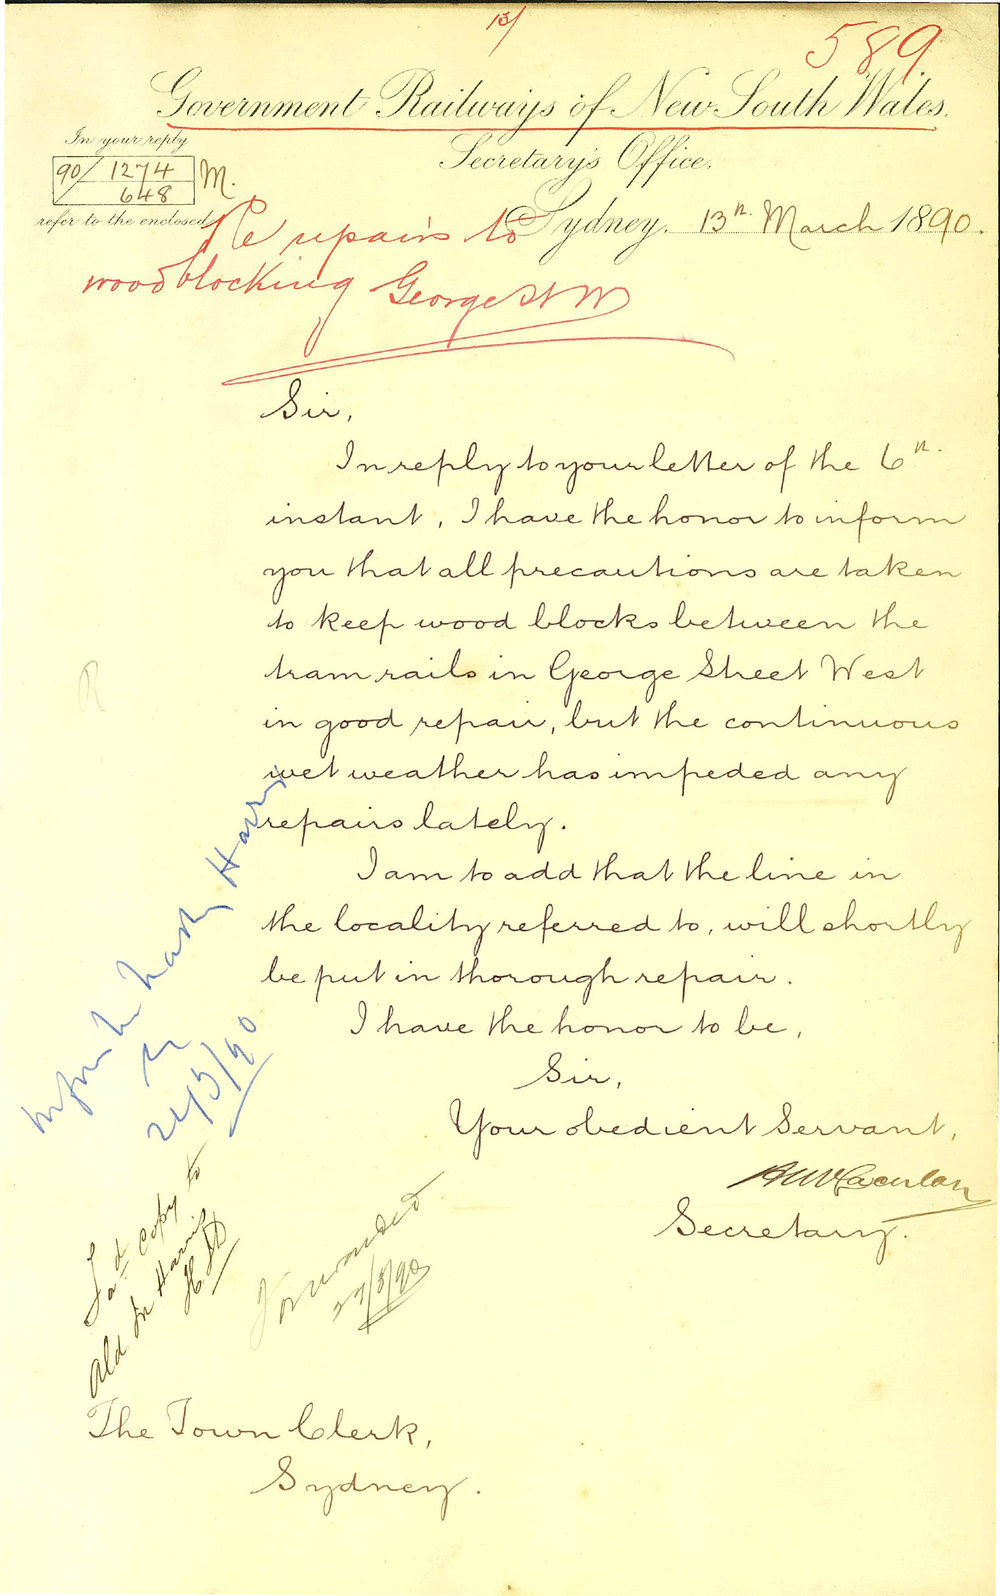 13/
589
Government Railways of New South Wales.
Secretary's Office.
In your reply
90/ 1274 M.
648
refer to the enclosed
Sydney. 13th March 1890.
Re repairs to
woodblocking George St W
Sir,
In reply to your letter of the 6th
instant, I have the honor to inform
you that all precautions are taken
to keep wood blocks between the
tram rails in George Street West
in good repair, but the continuous
wet weather has impeded any
repairs lately.
I am to add that the line in
the locality referred to, will shortly
be put in thorough repair.
I have the honor to be,
Sir,
Your obedient Servant,
Secretary.
Inform
Harris
24/3/90
copy to
Ald Harris
Forwarded
27/3/90
The Town Clerk,
Sydney.
R